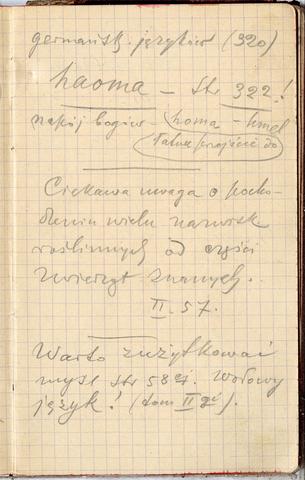 germańsk. języków (320)
haoma – Str 322!
napój bogów – homa – hmel
łatwe przejście do
Ciekawa uwaga o pocho-
dzeniu wielu nazwisk
roślinnych od części
zwierząt znanych.
II. 57.
Warto zużytkować
myśl str 58ej. Wołowy
język! (tom II gi).